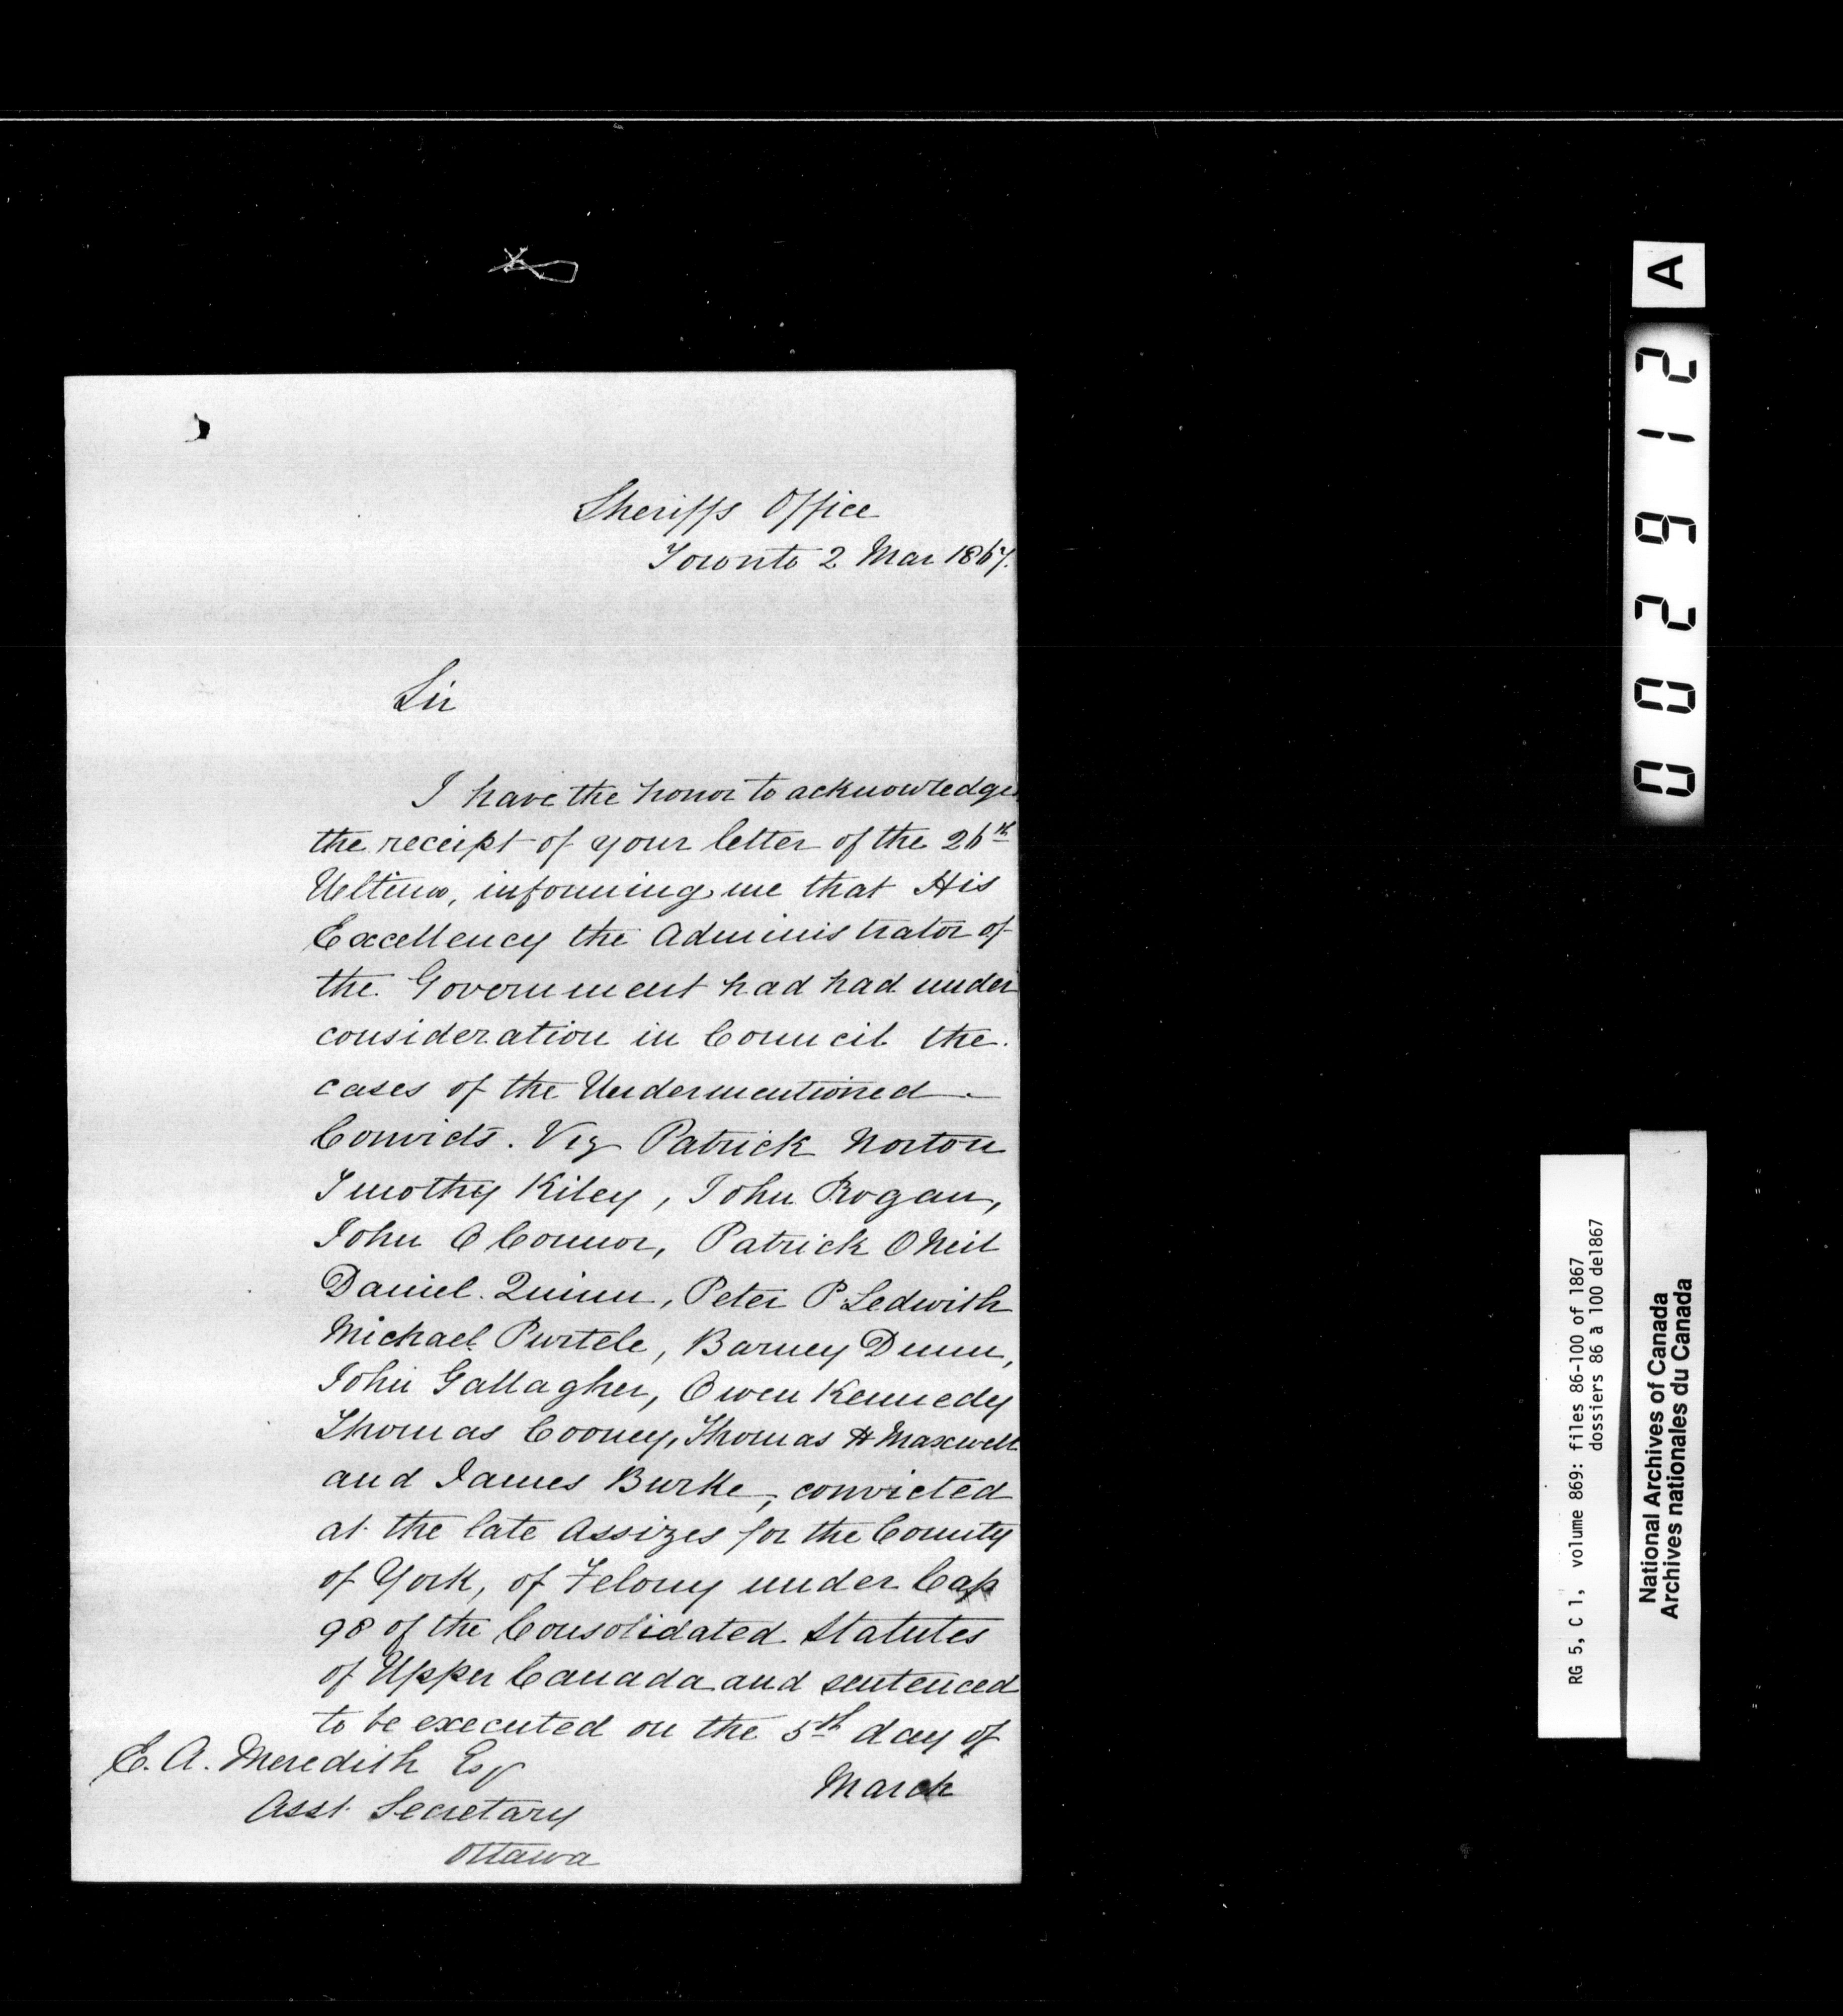 Sheriffs Office
Toronto 2 Mar 1867.
Sir
I have the honor to acknowledge
the receipt of your letter of the 26th
Ultimo, informing me that His
Excellency the Administrator of
the Government had had under
consideration in Council the
cases of the Undermentioned
Convicts. Viz Patrick Norton
Timothy Kiley, John Rogan,
John O Connor, Patrick O Neil
Daniel Quinn, Peter P Ledwith
Michael Purtele, Barney Dunn,
John Gallagher, Owen Kennedy
Thomas Cooney, Thomas H Maxwell
and James Burke, convicted
at the late Assizes for the County
of York, of Felony under Cap
98 of the Consolidated Statutes
of Upper Canada and sentenced
to be executed on the 5th day of
March
E. A. Meredith Esqr
Asst. Secretary
Ottawa
002912
A
RG 5, C 1, volume 869: files 86-100 of 1867
dossiers 86 à 100 de1867
National Archives of Canada
Archives nationales du Canada